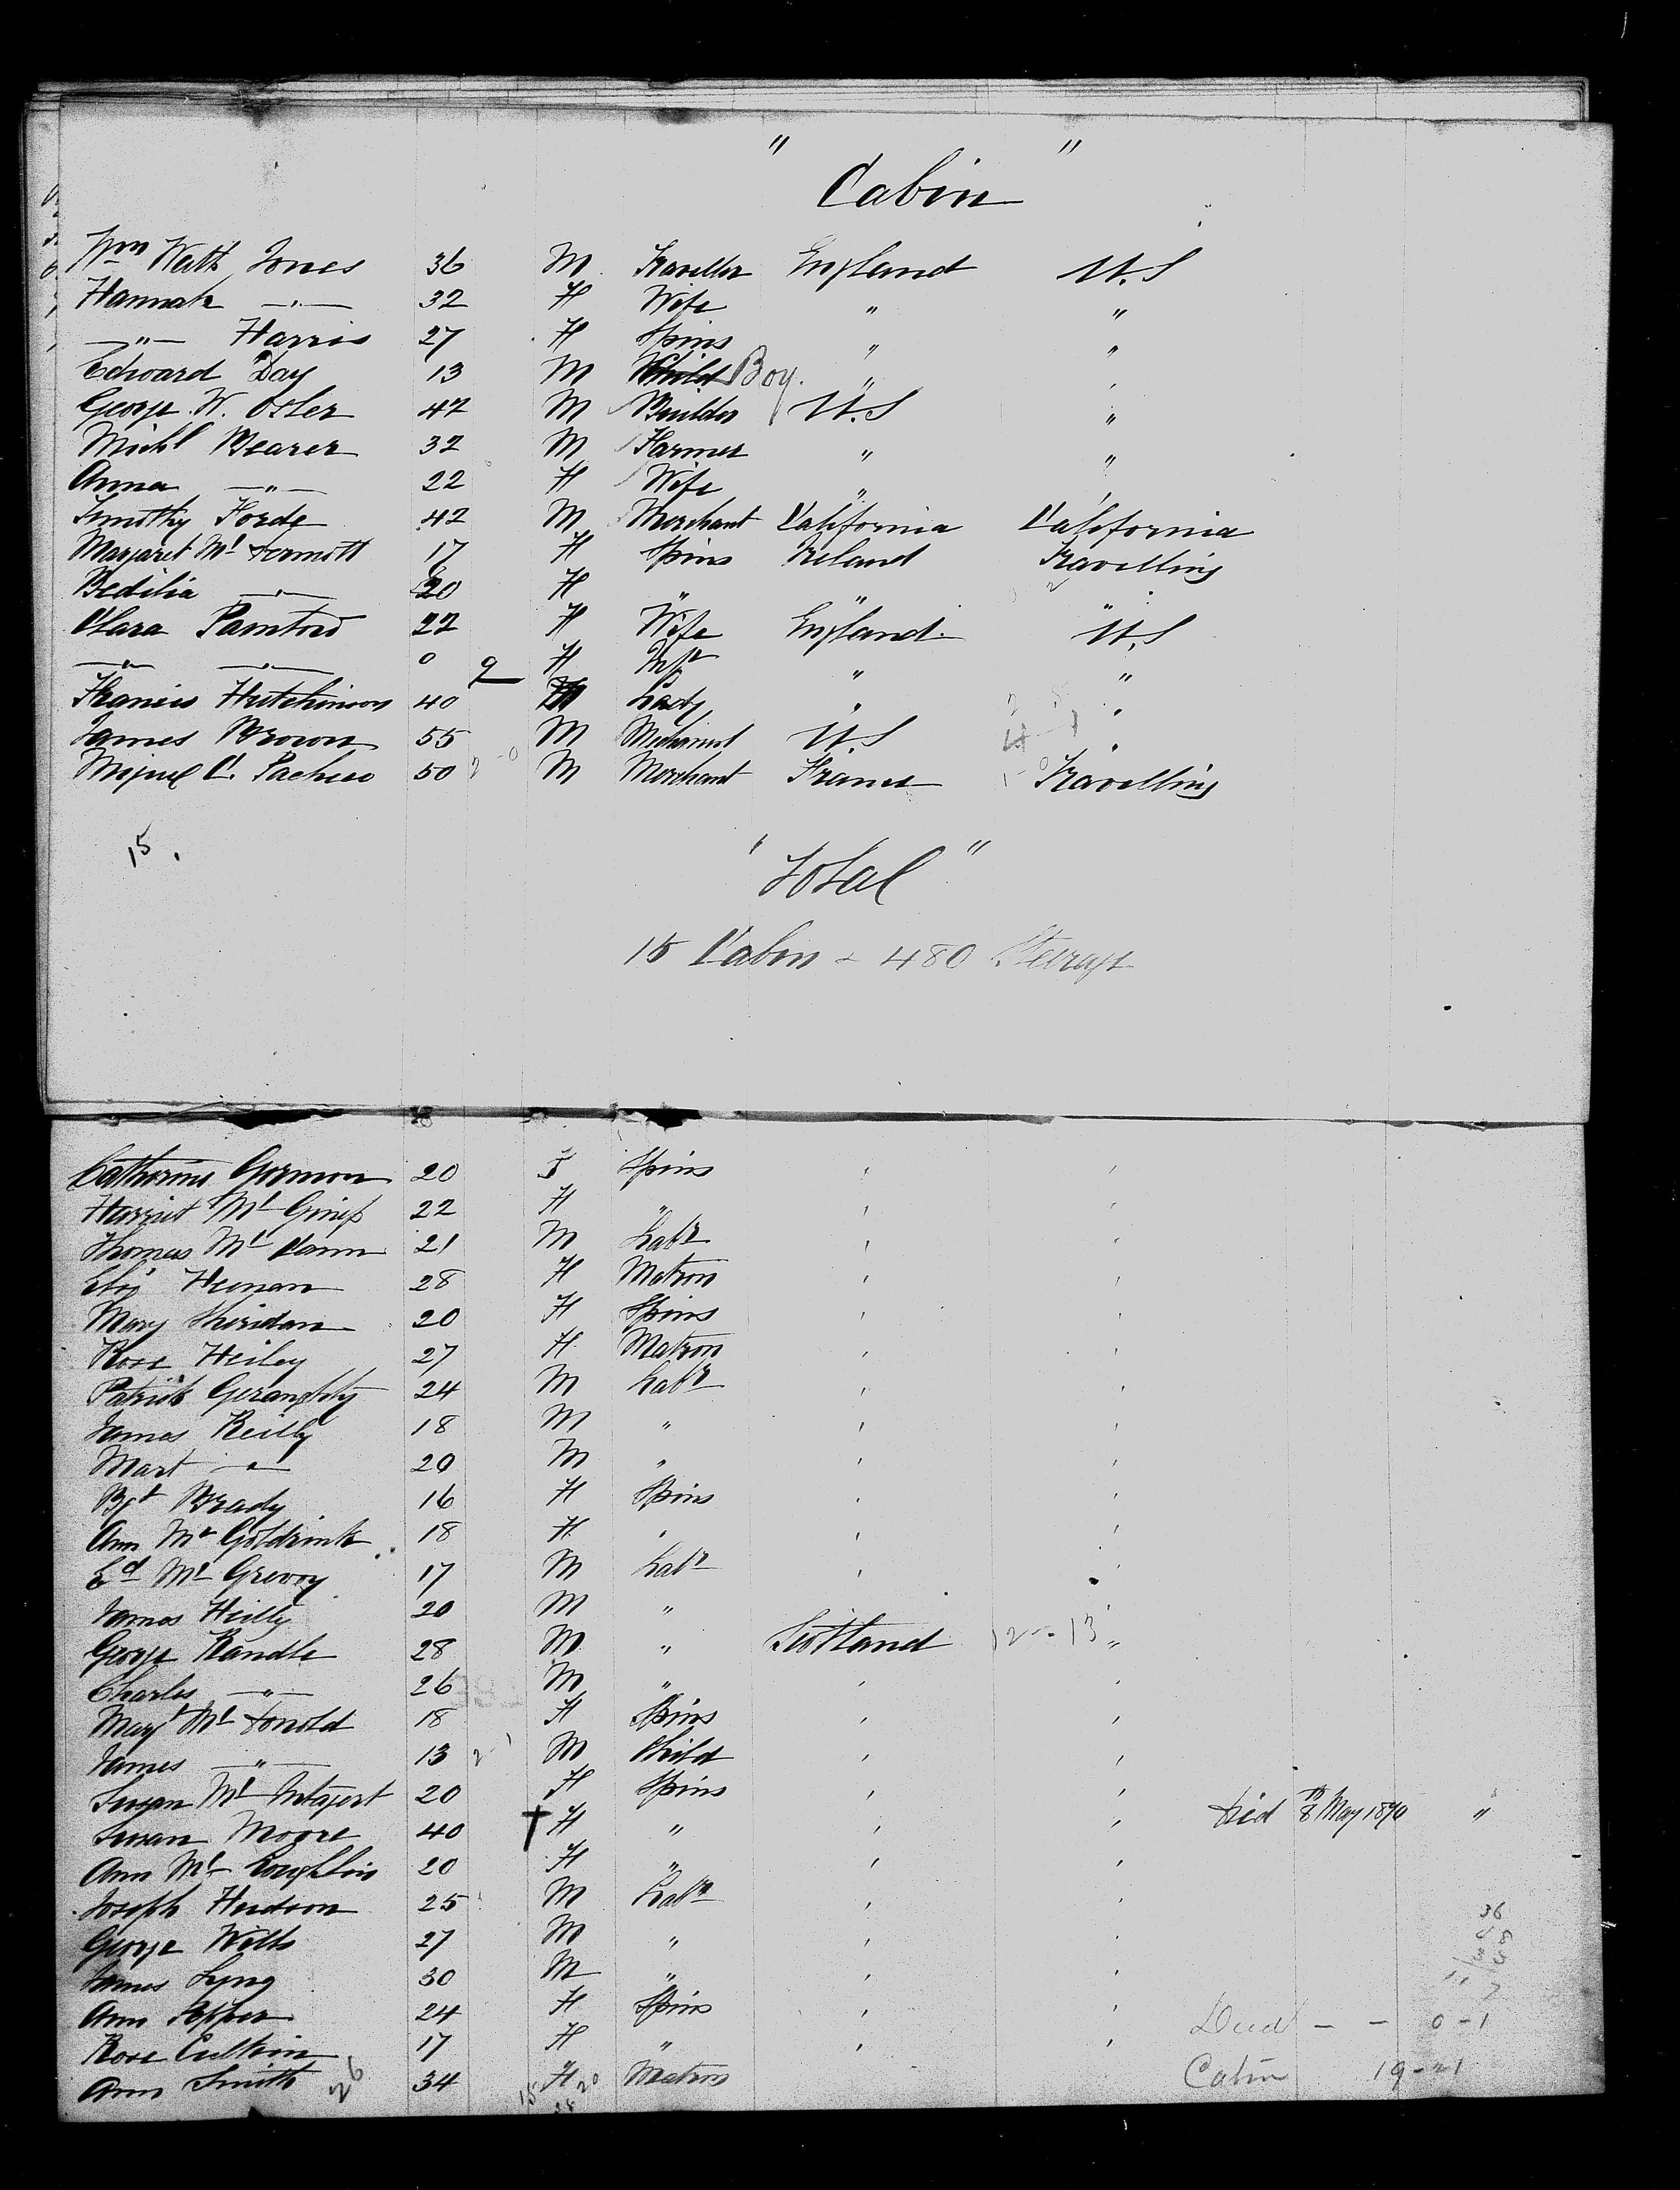 " Cabin "
Wm Watk Jones 36 M Traveller England U.S
Hannah —"— 32 F Wife " "
—"— Harris 27 F Spins " "
Edward Day 13 M Child Boy. " "
George W. Osler 47 M Builder U.S "
Michl Bearer 32 M Farmer " "
Anna —"— 22 F Wife "
Timothy Forde 42 M Merchant California California
Margaret Mc Dermott 17 F Spins Ireland Travelling
Bedilia —"— 20 F " " "
Clara 22 F Wife England U.S
—"— —"— 0 9 F Inft " "
Francis Hutchinson 40 Lady " "
James Brown 55 M U.S "
Miguel C. Pacheco 50 M Merchant France Travelling
15.
" Total "
15 Cabin & 480 Steerage
Catherine Gorman 20 F Spins " "
Harriet Mc Giniss 22 F " " "
Thomas Mc Cann 21 M Labr " "
Eliz Heenan 28 F Matron " "
Mary Sheridan 20 F Spins " "
Rose Heiley 27 F Matron " "
Patrick Geraughty 24 M Labr " "
James Reilly 18 M " " "
Mart —"— 20 M " " "
Bgt Brady 16 F Spins " "
Ann Mc Goldrick 18 F " " "
Ed Mc Grevoy 17 M Labr " "
James Heilly 20 M " "
George Randle 28 M " Scotland 12--13 "
Charles —"— 26 M " " "
Mart Mc Donold 18 F Spins " "
James —"— 13 M Child " "
Susan Mc 20 F Spins " "
Susan Moore 40 † F " " " Died 8th May 1870 "
Ann Mc Loughlin 20 F " " "
Joseph Hudson 25 M Labr " "
George Wills 27 M " " "
James Lyng 30 M " " "
Ann Pepper 24 F Spins " "
Rose Culkin 17 F " " " Died — — 0-1
Ann Smith 26 34 F Matron Cabin 19-21